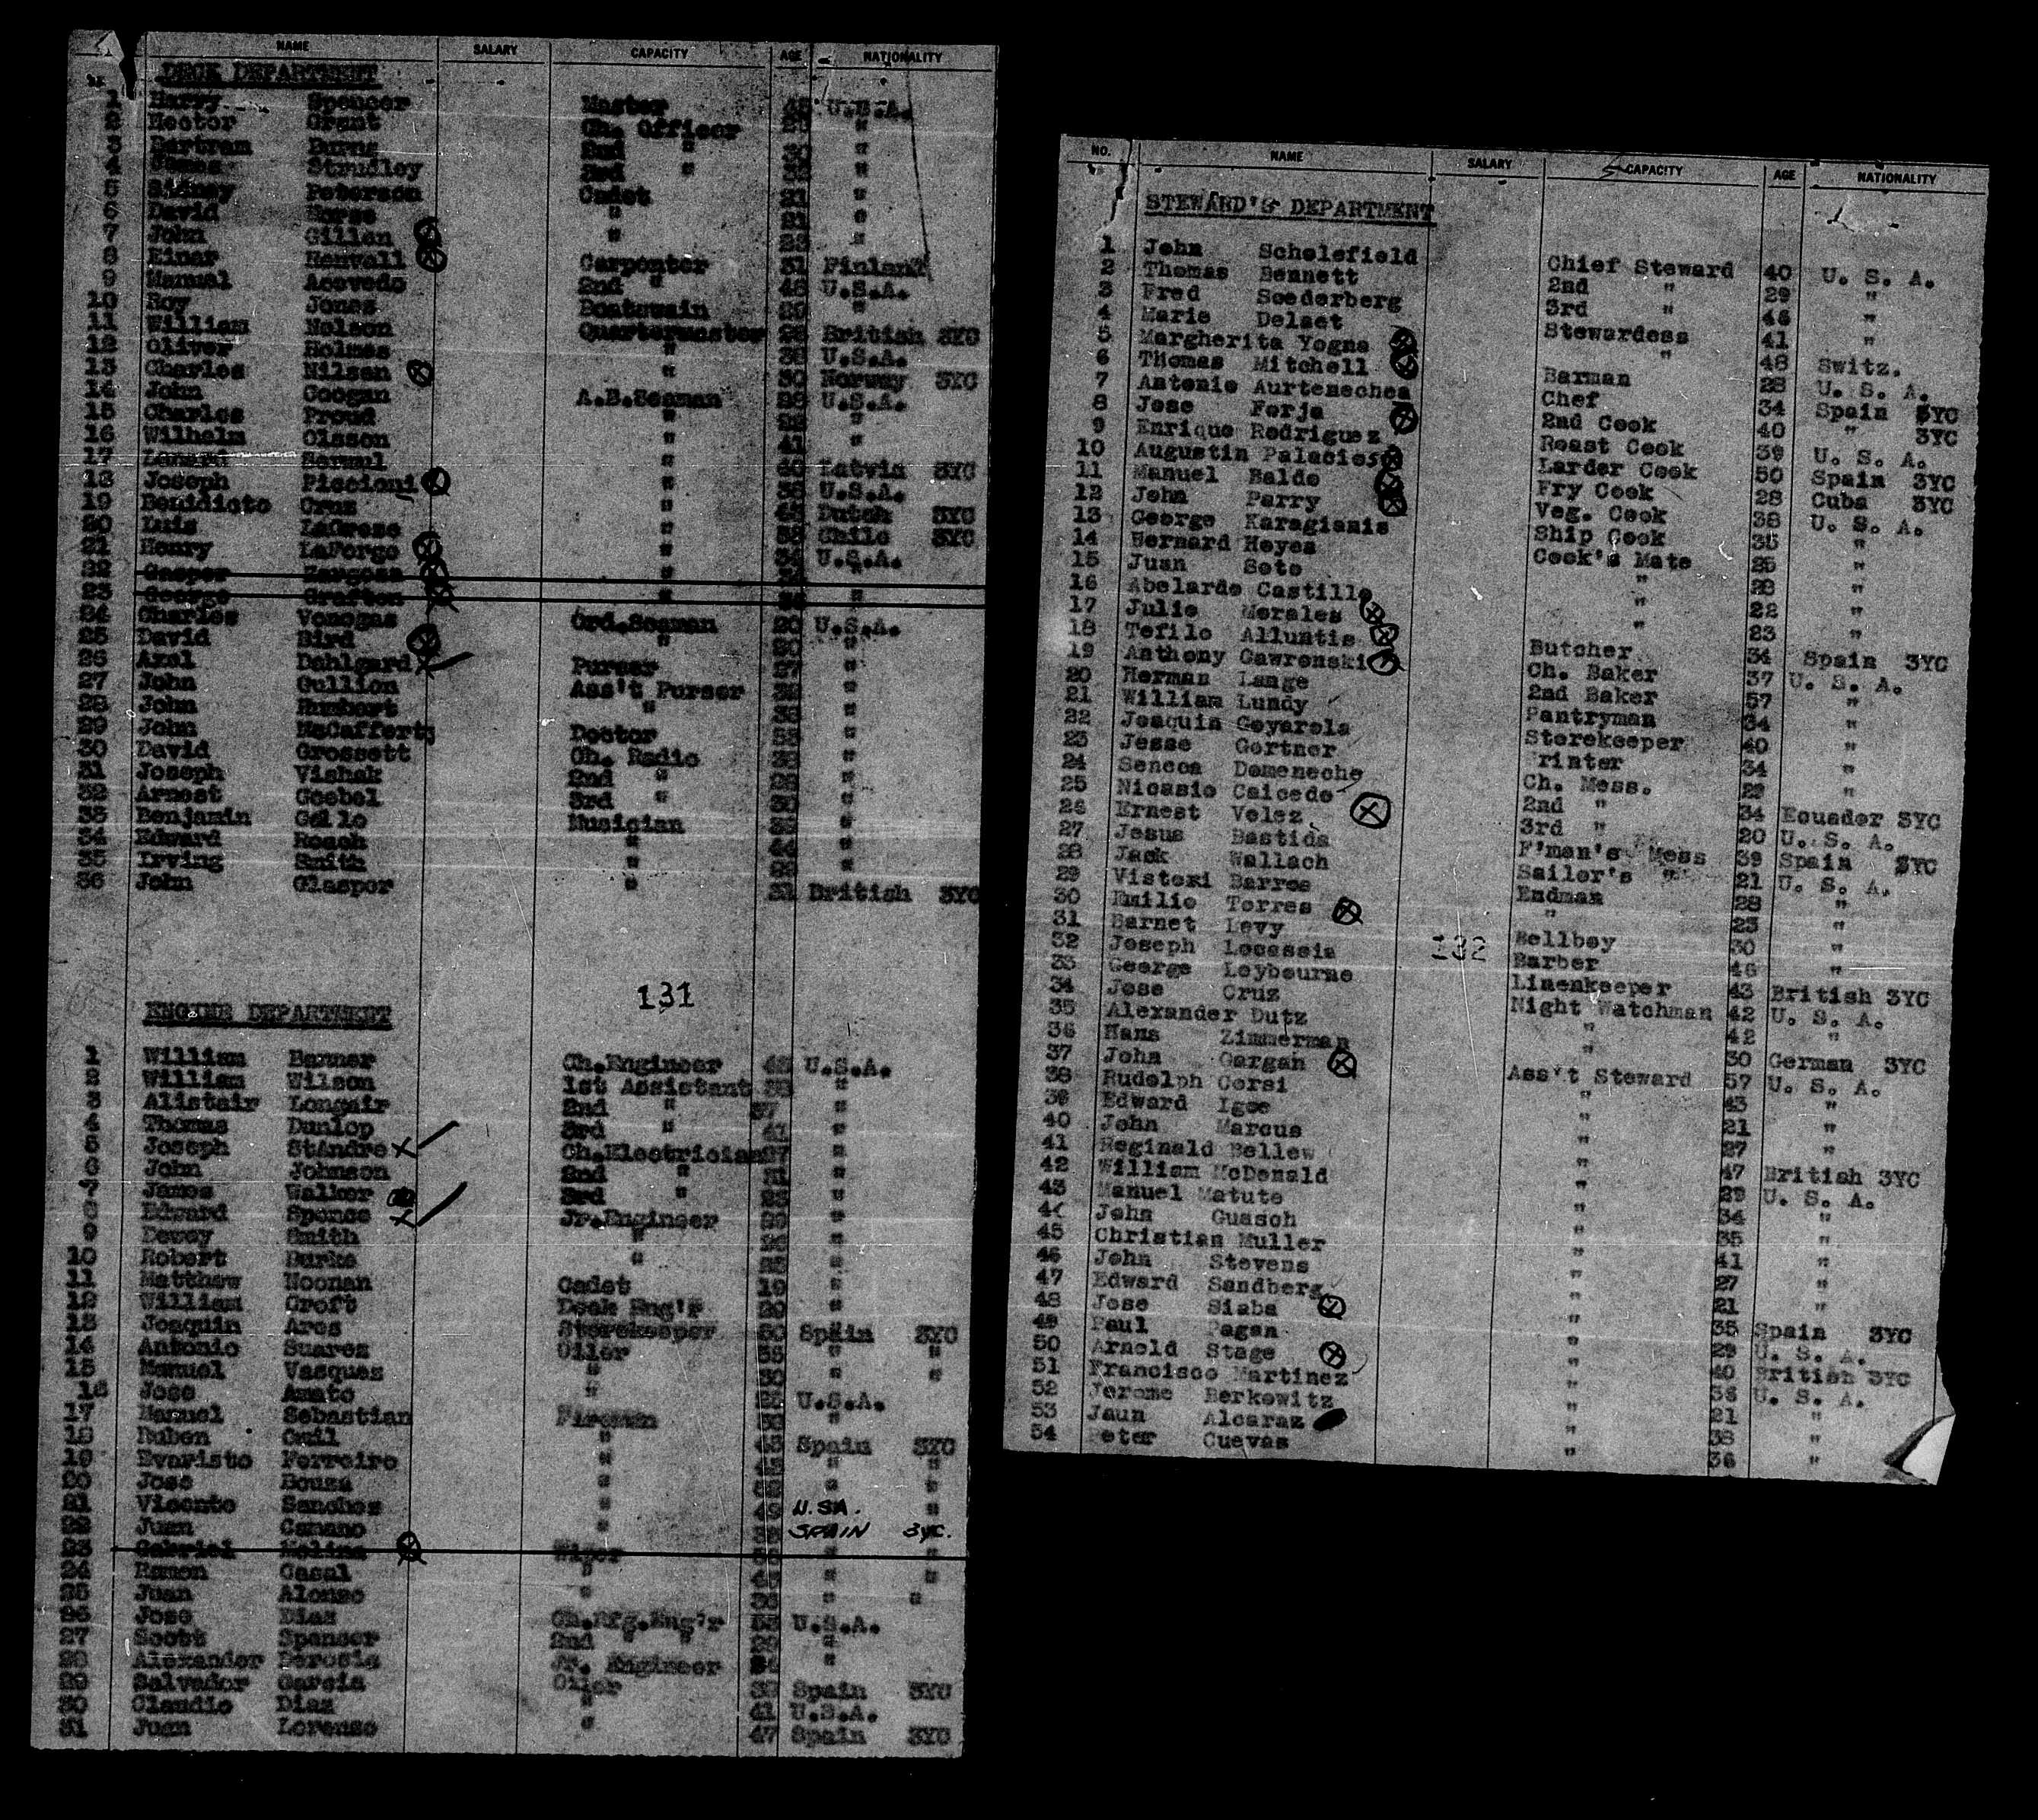 NAME SALARY CAPACITY AGE NATIONALITY
DECK DEPARTMENT
1 Harry Spencer Master U.S.A.
2 Hector Grant Ch. Officer "
3 Bartram Burns 2nd " "
4 James Strudley 3rd " "
5 Sidney Peterson Cadet 21 "
6 David " 21 "
7 John Gillen " 23 "
8 Einar Carpenter 31 Finland
9 Manual Acevedo 2nd " U.S.A.
10 Roy Jones Boatswain "
11 William Nelson Quartermaster British 3YC
12 Oliver Holmes " U.S.A.
13 Charles Nilsen " Norway 3YC
14 John Coogan A.B.Seaman U.S.A.
15 Charles Proud " "
16 Wilhelm Olsson " 41 "
17 " Latvia 3YC
18 Joseph Piccioni " U.S.A.
19 Benidicto Cruz " Dutch 3YC
20 Luis " Chile 3YC
21 Henry LaForge " U.S.A.
22 Gasper " "
23 George Grafton " "
24 Charles Vonogas Ord.Seaman U.S.A.
25 David Bird " "
26 Axel Dahlgard Purser 27 "
27 John Gullion Ass't Purser "
28 John Humbert " "
29 John McCafferty Doctor "
30 David Grossett Ch. Radio "
31 Joseph Vishak 2nd " "
32 Arnest Goebel 3rd " "
33 Benjamin Gallo Musician "
34 Edward Roach " 44 "
35 Irving Smith " "
36 John Glasper " 21 British 3YC
131
ENGINE DEPARTMENT
1 William Benner Ch.Engineer U.S.A.
2 William Wilson 1st Assistant "
3 Alistair Longair 2nd " 37 "
4 Thomas Dunlop 3rd " 41 "
5 Joseph StAndre Ch.Electrician "
6 John Johnson 2nd " "
7 James Walker 3rd " "
8 Edward Spence Jr.Engineer "
9 Dewey Smith " "
10 Robert Burke " "
11 Matthew Noonan Cadet 19 "
12 William Croft Deck Eng'r "
13 Joaquin Ares Storekeeper 50 Spain 3YC
14 Antonio Suarez Oiler " "
15 Manuel Vasques " " "
16 Jose Amato " U.S.A.
17 Manuel Sebastian Fireman "
18 Ruben " Spain 3YC
19 Evaristo Ferreiro " " "
20 Jose Bouza " " "
21 Vicente Sanchez " U.SA. "
22 Juan Camano " SPAIN 3YC.
23 Gabriel Molina Wiper " "
24 Ramon Casal " " "
25 Juan Alonso " " "
26 Jose Diaz Ch.Rfg.Eng'r U.S.A.
27 Scott Spenser 2nd " " "
28 Alexander Jr. Engineer "
29 Salvador Garcia Oiler Spain 3YC
30 Claudio Diaz " 41 U.S.A.
31 Juan Lorenzo " 47 Spain 3YC
NO. NAME SALARY CAPACITY AGE NATIONALITY
STEWARD'S DEPARTMENT
1 John Scholefield Chief Steward 40 U. S. A.
2 Thomas Bennett 2nd " 29 "
3 Fred Soederberg 3rd " 46 "
4 Marie Delaet Stewardess 41 "
5 Margherita Yogna " 48 Switz.
6 Thomas Mitchell Barman 28 U. S. A.
7 Antonio Aurtenechea Chef 34 Spain 3YC
8 Jose Forja 2nd Cook 40 " 3YC
9 Enrique Rodriguez Roast Cook 39 U. S. A.
10 Augustin Palacios Larder Cook 50 Spain 3YC
11 Manuel Baldo Fry Cook 28 Cuba 3YC
12 John Parry Veg. Cook 38 U. S. A.
13 George Karagianis Ship Cook 35 "
14 Bernard Hoyes Cook's Mate "
15 Juan Soto " 28 "
16 Abelardo Castillo " 22 "
17 Julio Morales " 23 "
18 Tofilo Alluntis Butcher 34 Spain 3YC
19 Anthony Gawronski Ch. Baker 37 U. S. A.
20 Herman Lange 2nd Baker 57 "
21 William Lundy Pantryman 34 "
22 Joaquin Goyarola Storekeeper 40 "
23 Jesse Gortner rinter 34 "
24 Seneca Domeneche Ch. Mess. "
25 Nicasio Caicedo 2nd " 34 Ecuador 3YC
26 Ernest Velez 3rd " 20 U. S. A.
27 Jesus Bastida F'man's Mess 39 Spain 3YC
28 Jack Wallach Sailor's " 21 U. S. A.
29 Vistoxi Barros Endman 28 "
30 Emilio Torres " 23 "
31 Barnet Levy Bellboy 30 "
32 Joseph Locascia 132 Barber 46 "
33 George Leybourne Linenkeeper 43 British 3YC
34 Jose Cruz Night Watchman 42 U. S. A.
35 Alexander Dutz " 42 "
36 Hans Zimmerman " 30 German 3YC
37 John Gargan Ass't Steward 57 U. S. A.
38 Rudolph Corsi " 43 "
39 Edward Igoe " 21 "
40 John Marcus " 27 "
41 Reginald Bellew " 47 British 3YC
42 William McDonald " 29 U. S. A.
43 Manuel Matute " 34 "
44 John Guasch " 35 "
45 Christian Muller " 41 "
46 John Stevens " 27 "
47 Edward Sandberg " 21 "
48 Jose Siaba " 35 Spain 3YC
49 Paul Pagan " 29 U. S. A.
50 Arnold Stage " 40 British 3YC
51 Francisco Martinez " 36 U. S. A.
52 Jerome Berkowitz " 21 "
53 Jaun Alcaraz " 38 "
54 Peter Cuevas " 36 "